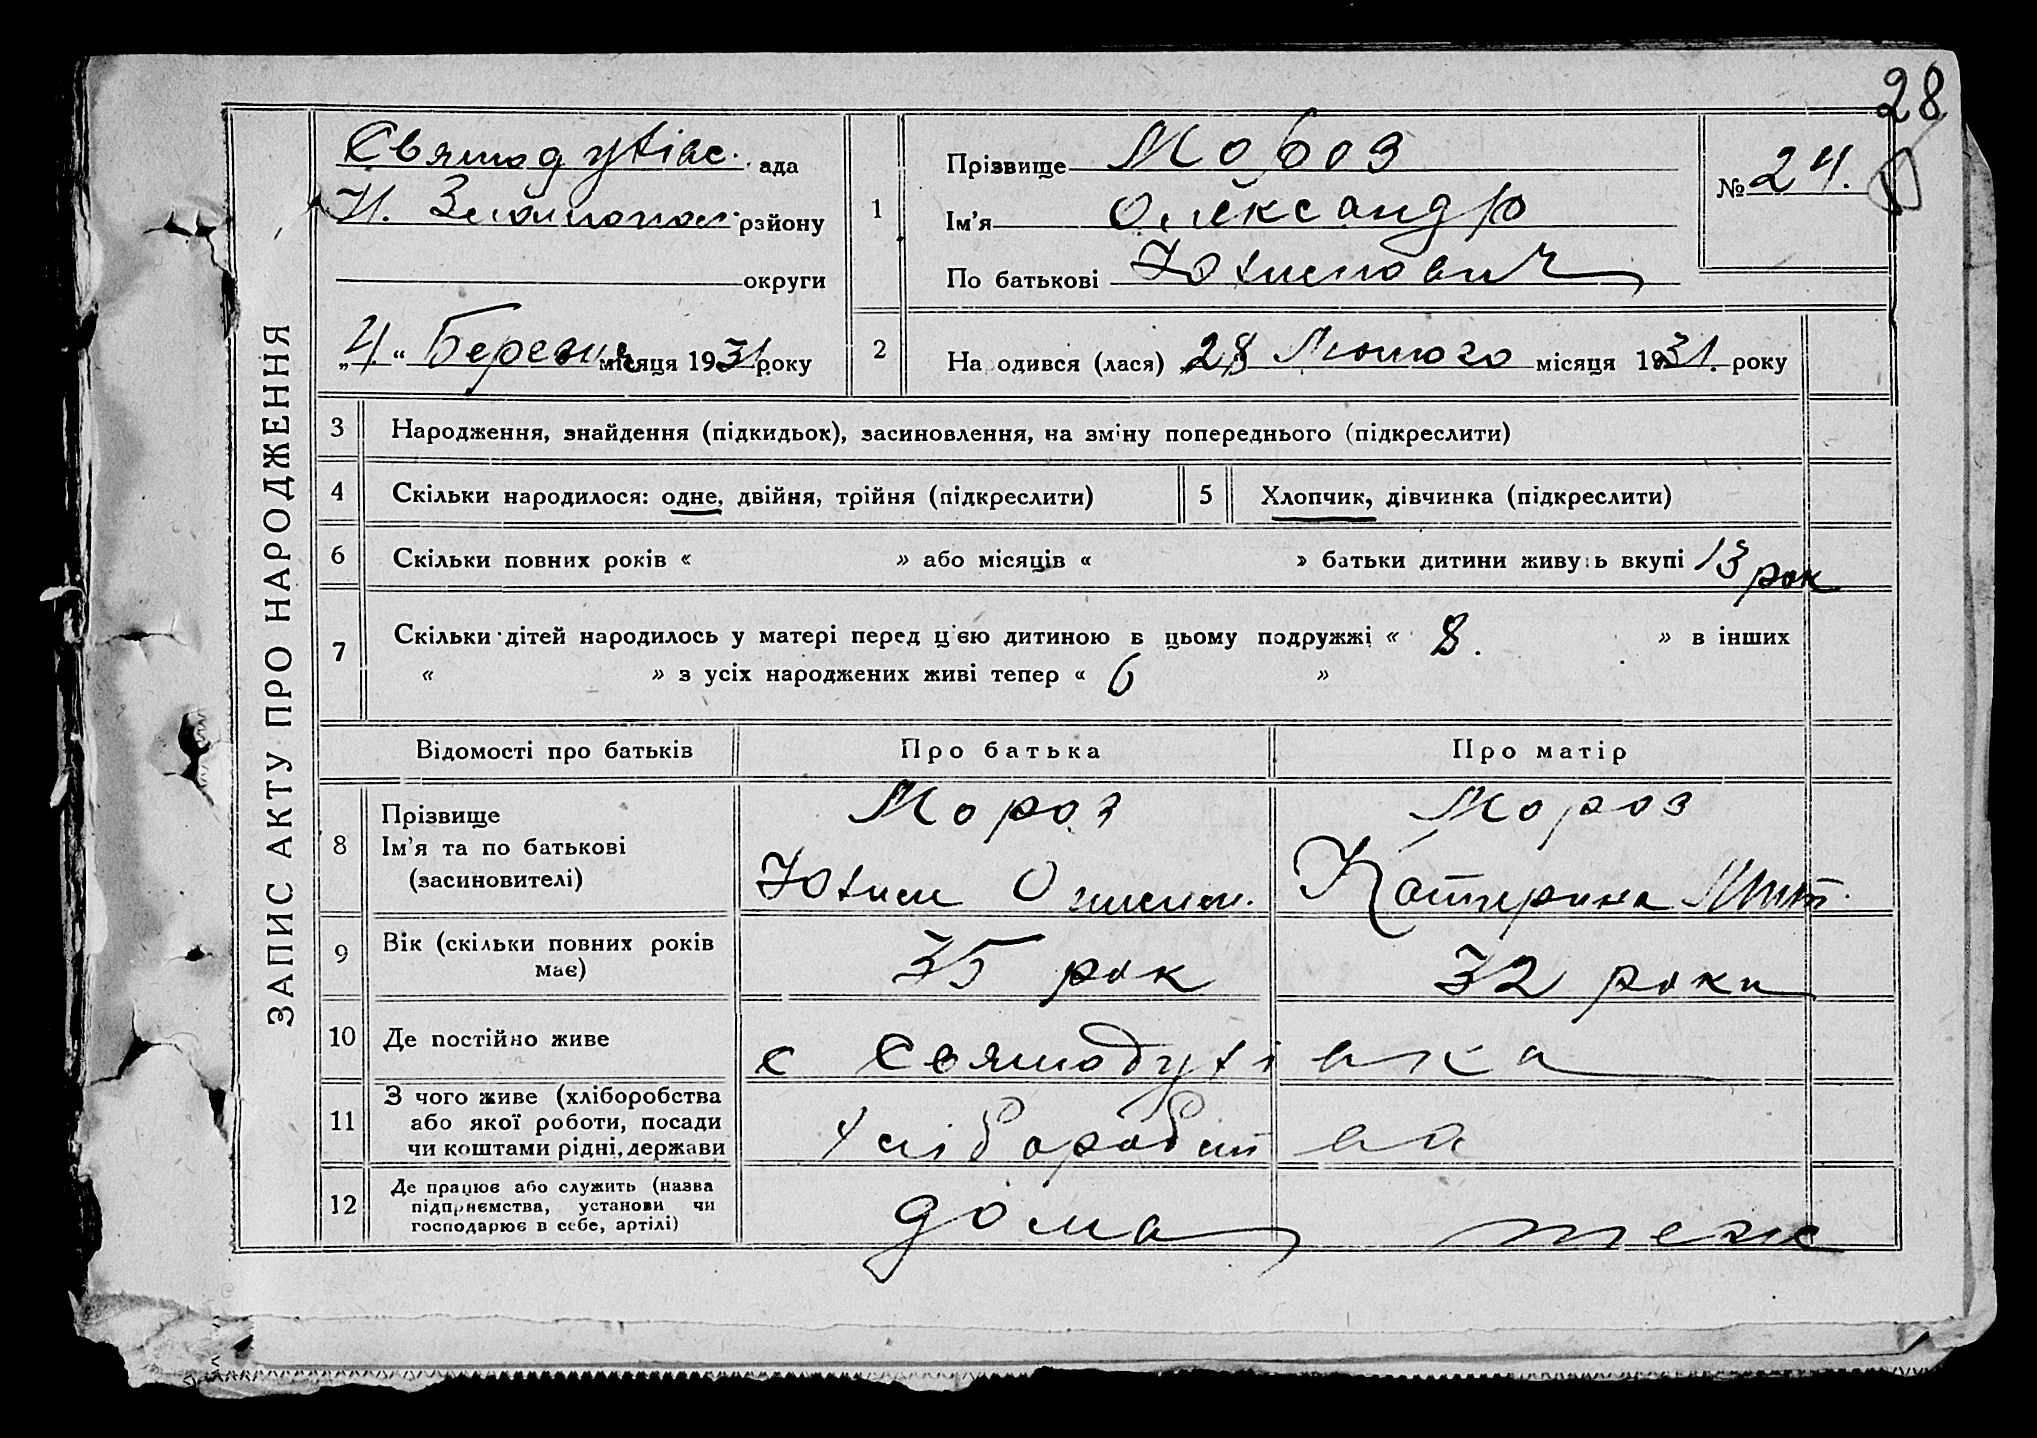 28
ЗАПИС АКТУ ПРО НАРОДЖЕННЯ
Святодухівс. ада
району
округи
„4“ Березня місяця 1931 року
1
Прізвище Мороз
Ім’я Олександр
По батькові Юхимович
№ 24.
2
На одився (лася) 28 Лютого місяця 1931. року
3 Народження, знайдення (підкидьок), засиновлення, на зміну попереднього (підкреслити)
4 Скільки народилося: одне, двійня, трійня (підкреслити) 5 Хлопчик, дівчинка (підкреслити)
6 Скільки повних років « » або місяців « » батьки дитини живуть вкупі 13 рок
7 Скільки дітей народилось у матері перед цією дитиною в цьому подружжі « 8. » в інших
« » з усіх народжених живі тепер « 6 »
Відомості про батьків Про батька Про матір
8 Прізвище
Ім’я та по батькові
(засиновителі)
Мороз
Юхим
Мороз
Катерина Мит.
9 Вік (скільки повних років
має)
35 рок 32 роки
10 Де постійно живе с Святодухівка
11 З чого живе (хліборобства
або якої роботи, посади
чи коштами рідні, держави
хліборобства
12 Де працює або служить (назва
підприємства, установи чи
господарює в себе, артілі)
дома теж